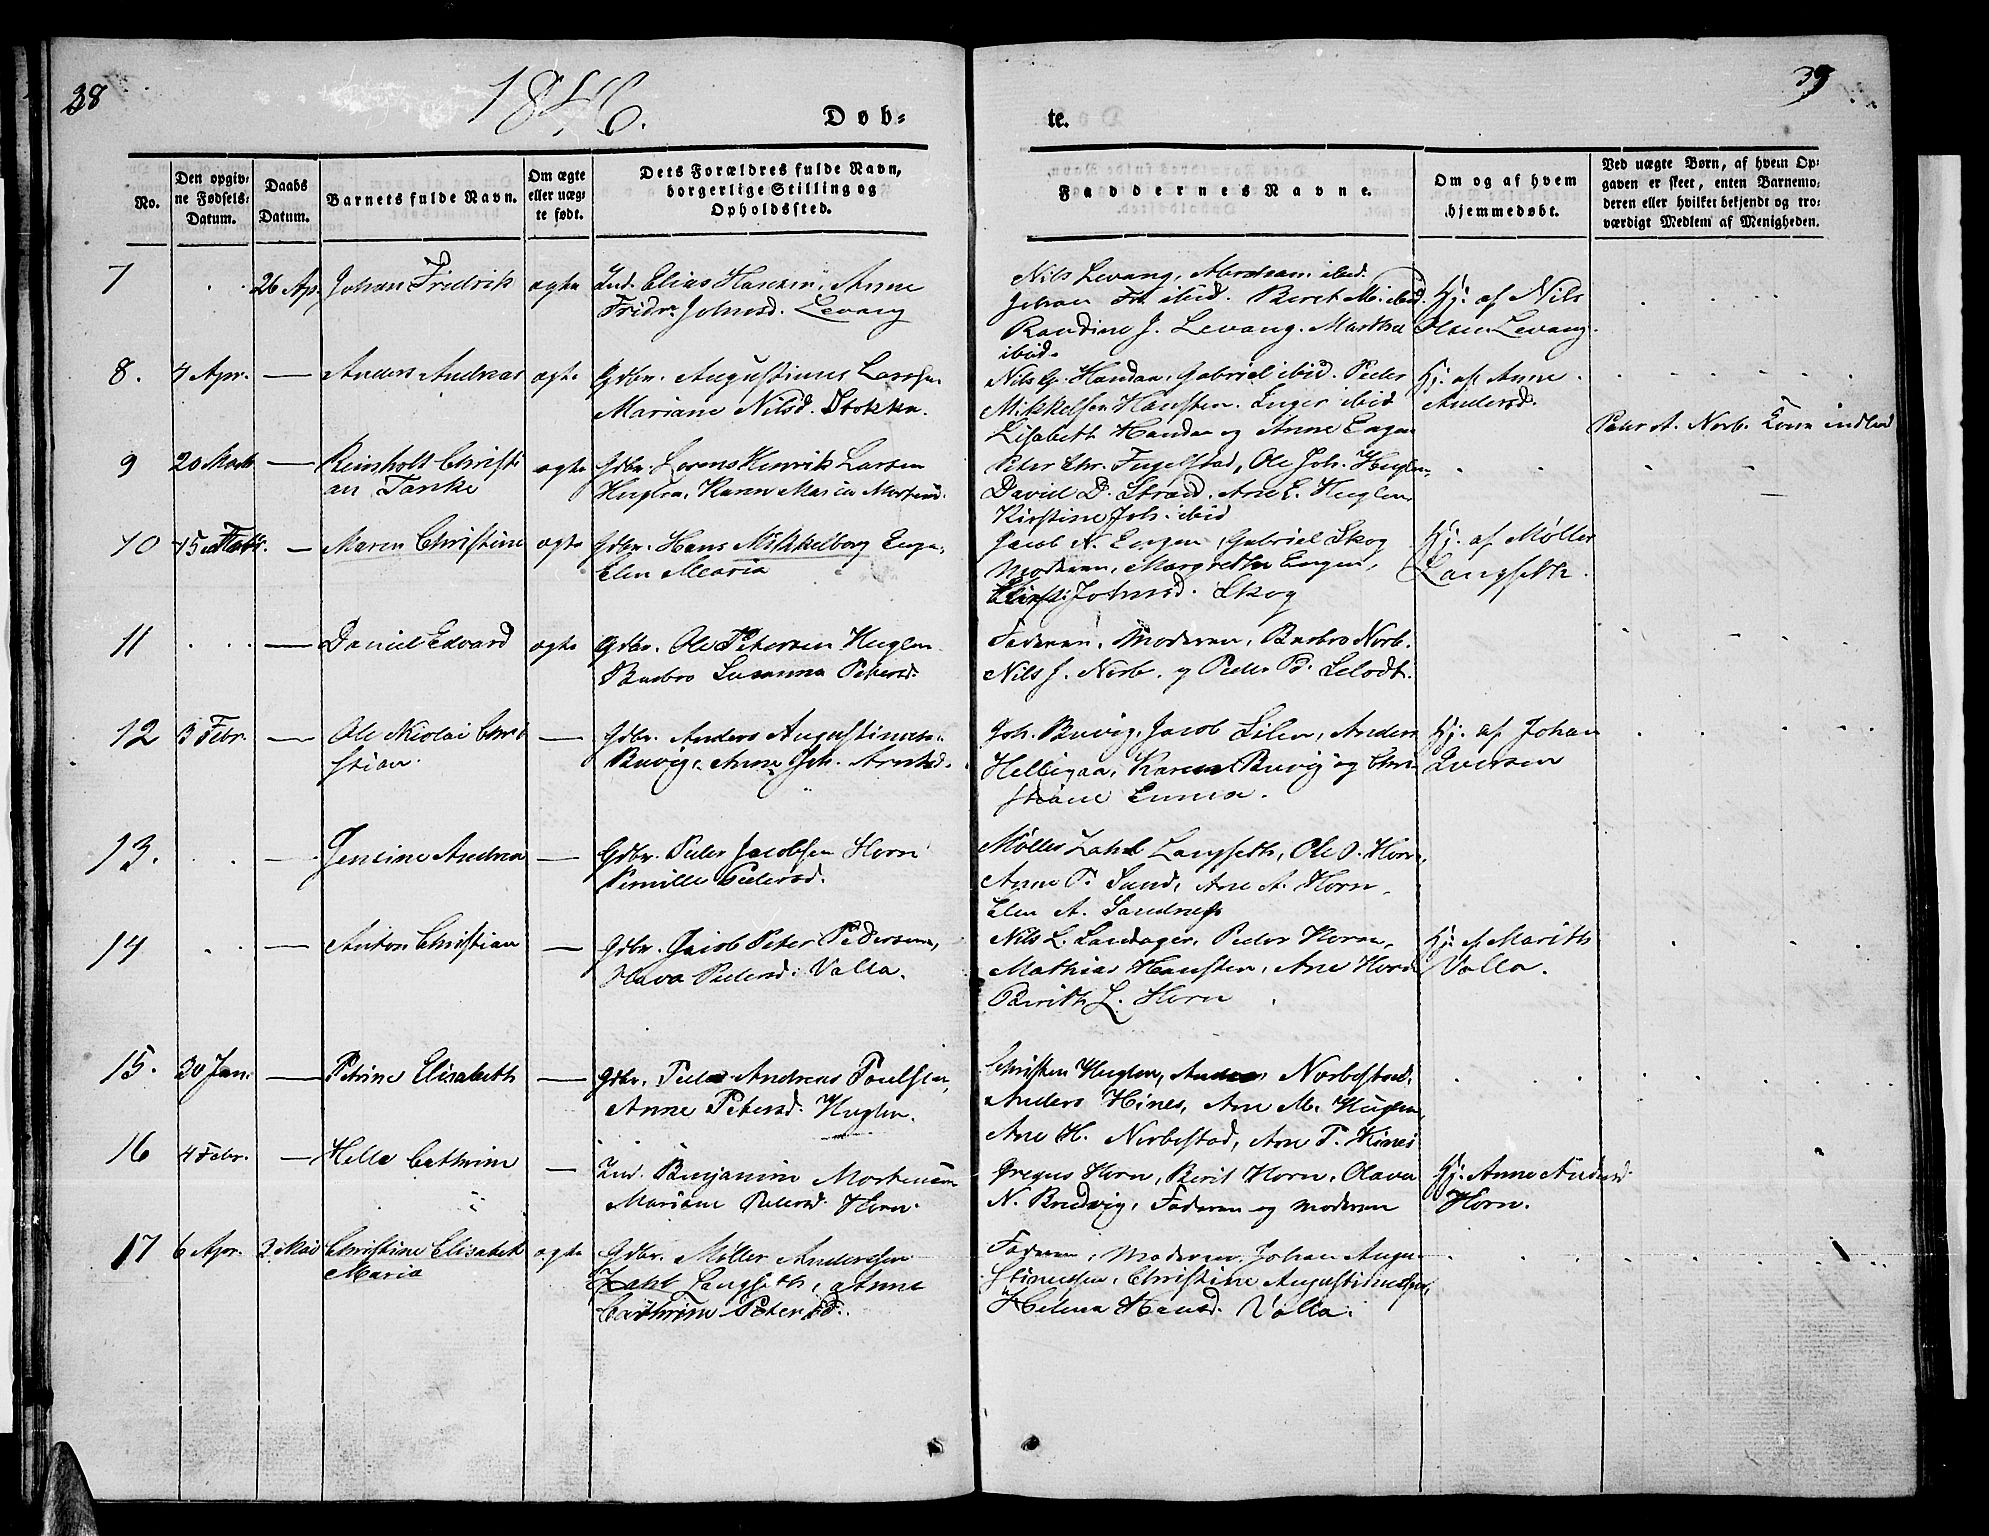 38
1846.
Døb-
te.
39
No.
Den opgiv-
ne Fødsels-
Datum.
Daabs
Datum.
Barnets fulde Navn.
Om ægte
eller uæg-
te født.
Dets Forældres fulde Navn,
borgerlige Stilling og
Opholdssted.
Faddernes Navne.
Om og af hvem
hjemmedøbt.
Ved uægte Børn, af hvem Op-
gaven er skeet, enten Barnemo-
deren eller hvilket bekjendt og tro-
værdigt Medlem af Menigheden.
7 . . 26 Ap. Johan Fridrik ægte Ind. Elias Hansen, Anne
Fridr. Johnsd. Levang
Nils Levang, Abraham ibid.
Johan Fr. ibid. Beret M. ibid.
Randine J. Levang. Martha
ibid.
Hj. af Nils
Olsen Levang.
8. 4 Apr. — Anders Andreas ægte Gdbr. Augustinus Larsen
Mariane Nilsd. Stokka.
Nils G. Handan, Gabriel ibid. Peder
Mikkelsen Hansten. Inger ibid
Lisabeth Handan og Anne Engen
Hj. af Anne
Andersd.
Peder A. Norb. Kone indled
9 20 Marts — Reinholt Christi
an Tanke ægte Gdbr. Lorens Henrik Larsen
Huglen, Karen Maria Mortensd.
Peter Chr. Fugelstad, Ole Joh. Huglen,
David D. Strand, Ane E. Huglen,
Kirstine Joh. ibid
10 15 — Maren Christine ægte Gdbr. Hans Mikkelborg Engen,
Elen Mearia
Jacob N. Engen, Gabriel Skog
Moderen, Margrethe Engen,
Johnsd. Skog
Hj. af Møller
Langseth.
11 . . . — Daniel Edvard ægte Gdbr. Ole Petersen Huglen
Barbro Susanna Petersd.
Faderen, Moderen, Barbro Norb.
Nils J. Norb. og Peder P. Selodt.
12 3 Febr. — Ole Nicolai Chri
stian. — Gdbr. Anders Augustinusen
Buvig, Anne Joh. Arntsd.
Joh. Buvig, Jacob Lilen, Anders
Helligaa, Karen Buvig og Chri
stiane Emma.
Hj. af Johan
Iversen
13. . . — Jensine Andrea — Gdbr. Peder Jacobsen Horn
Pernille Pedersd.
Møller Zahl Langseth, Ole P. Horn,
Anne P. Sund, Ane A. Horn,
Elen A. Sandnes
14 . . — Anton Christian — Gdbr. Jacob Peter Pedersen,
Hava Pedersd. Valla.
Nils L. Landager, Peder Horn,
Mathias Hansten, Ane Horn
Berith L. Horn
Hj. af Marith
Valla.
15. 30 Jan. — Petrine Elisabeth — Gdbr. Peder Andreas Poulsen,
Anne Petersd. Huglen.
Christen Huglen, Anders Norbostad,
Anders Hines, Ane M. Huglen,
Ane H. Norbostad, Ane P. Hines
16 4 Febr. — Helle Cathrine — Ind. Benjamin Mortensen
Mariane Pedersd. Horn.
Gregus Horn, Berit Horn, Olava
N. Bredvig, Faderen og Moderen
Hj. Anne Andersd
Horn.
17 6 Apr. 3 Mai Christine Elisabeth
Maria ægte Gdbr. Møller Andersen
Zahl Langseth, Anne
Cathrine Petersd.
Faderen, Moderen, Johan Augu
stinussen, Christine Augustinussen,
Helena Hansd. Valla.